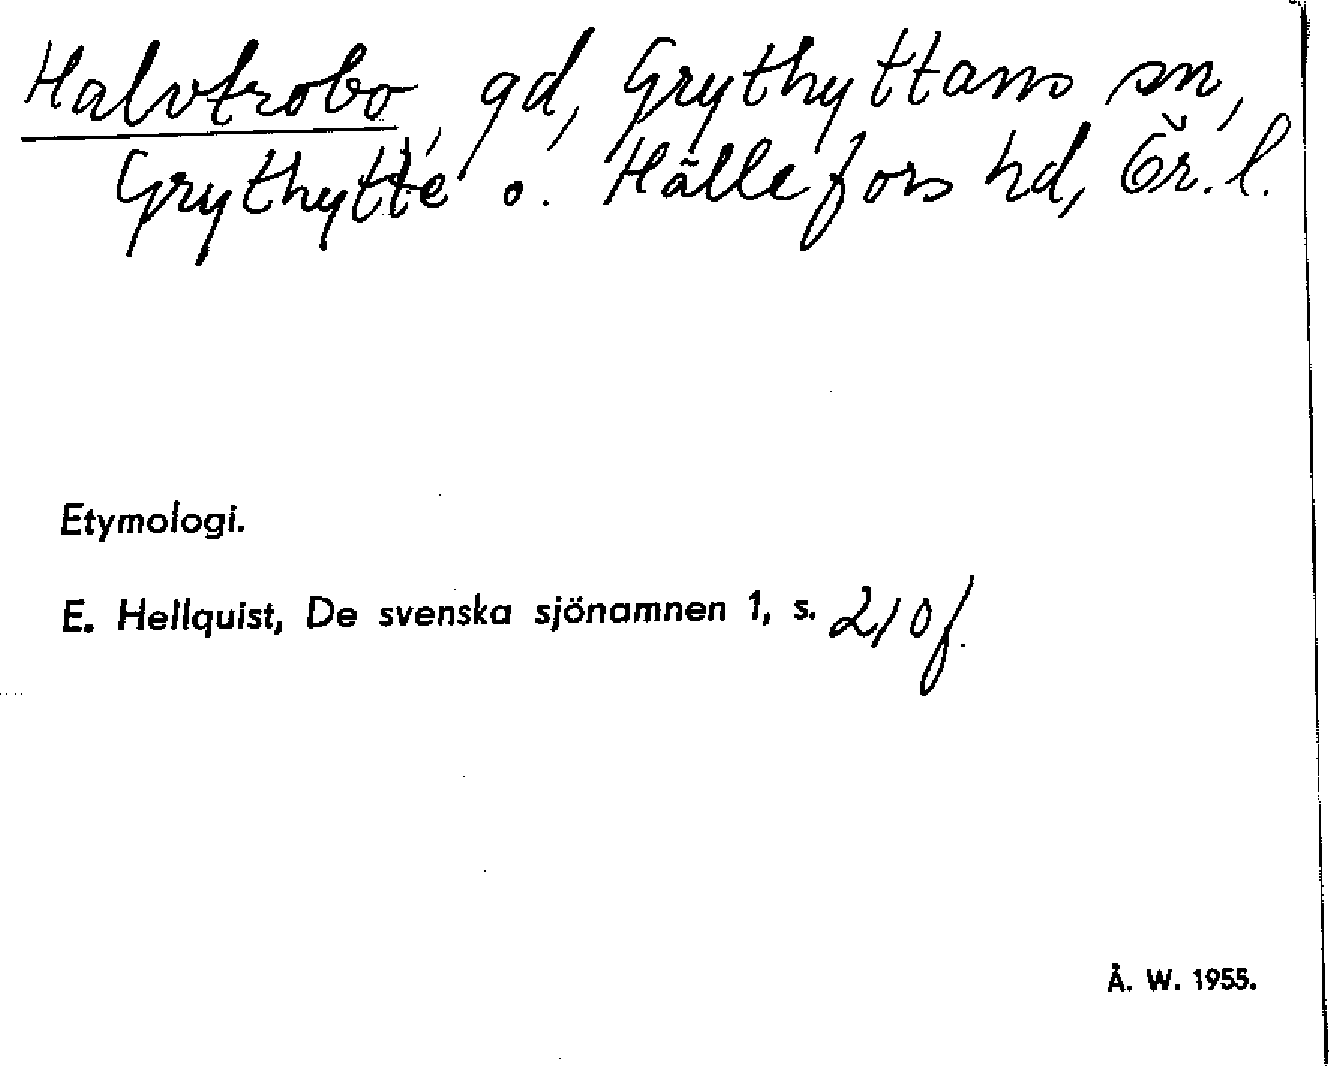 Halvtrobo, gd, Grythyttans sn,
Grythytte o. Hällefors hd, Ör. l.
Etymologi.
E. Hellquist, De svenska sjönamnen 1, s. 210 f.
Å. W. 1955.